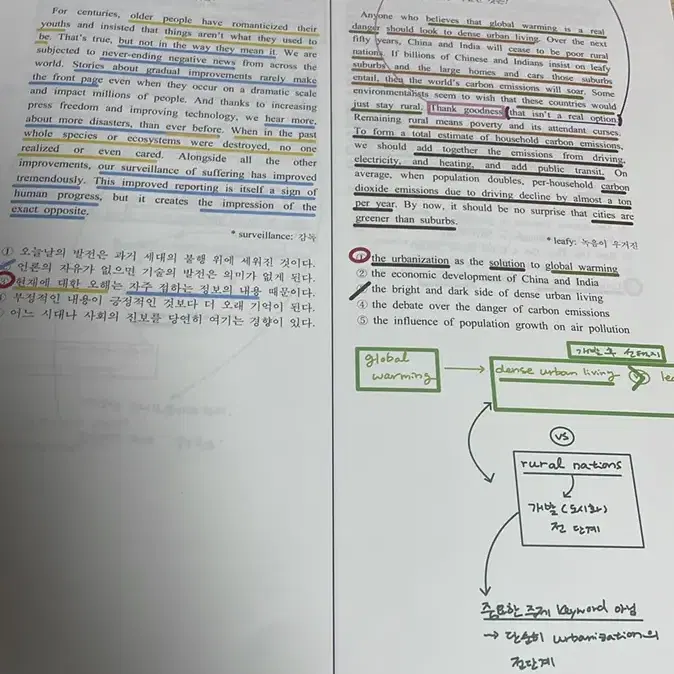 For centuries, older people have romanticized their
youths and insisted that things aren't what they used to
be. That's true, but not in the way they mean it. We are
subjected to never-ending negative news from across the
world. Stories about gradual improvements rarely make
the front page even when they occur on a dramatic scale
and impact millions of people. And thanks to increasing
press freedom and improving technology, we hear more,
about more disasters, than ever before. When in the past
whole species or ecosystems were destroyed, no one
realized or even cared. Alongside all the other
improvements, our surveillance of suffering has improved
tremendously. This improved reporting is itself a sign of
human progress, but it creates the impression of the
exact opposite.
* surveillance: 감독
① 오늘날의 발전은 과거 세대의 불행 위에 세워진 것이다.
언론의 자유가 없으면 기술의 발전은 의미가 없게 된다.
현재에 대한 오해는 자주 접하는 정보의 내용 때문이다.
부정적인 내용이 긍정적인 것보다 더 오래 기억이 된다.
어느 시대나 사회의 진보를 당연히 여기는 경향이 있다.
Anyone who believes that global warming is a real
danger should look to dense urban living. Over the next
fifty years, China and India will cease to be poor rural
nations. If billions of Chinese and Indians insist on leafy
suburbs and the large homes and cars those suburbs
entail, then the world's carbon emissions will soar. Some
environmentalists seem to wish that these countries would
just stay rural. Thank goodness (that isn't a real option)
Remaining rural means poverty and its attendant curses.
To form a total estimate of household carbon emissions,
we should add together the emissions from driving,
electricity, and heating, and add public transit. On
average, when population doubles, per-household carbon
dioxide emissions due to driving decline by almost a ton
per year. By now, it should be no surprise that cities are
greener than suburbs.
* leafy: 녹음이 우거진
① the urbanization as the solution to global warming
② the economic development of China and India
③ the bright and dark side of dense urban living
④ the debate over the danger of carbon emissions
⑤ the influence of population growth on air pollution
개발 후
global
warming
dense urban living
vs
lea
vs
rural nations
개발(도시화)
전 단계
중요한 주제 keyword 아님
→ 단순히 urbanization의
전단계